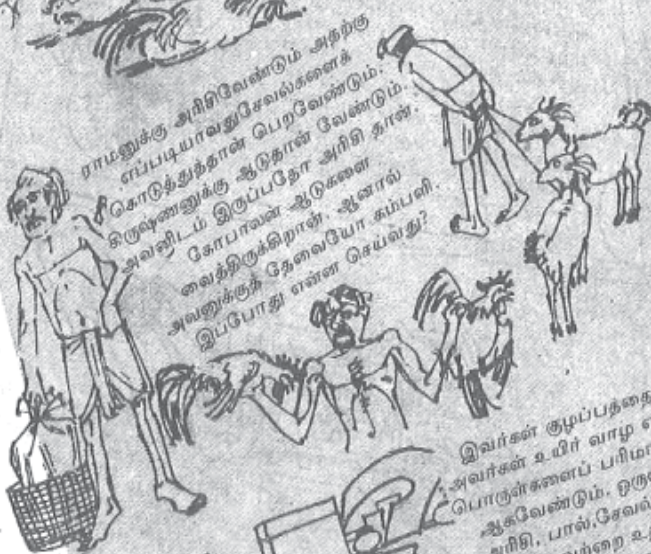 ராமனுக்கு அரிசிவேண்டும் அதற்கு
எப்படியாவதுசேவல்களைக்
கொடுத்துத்தான் பெறவேண்டும்.
கிருஷ்ணனுக்கு ஆடுதான் வேண்டும்.
அவனிடம் இருப்பதோ அரிசி தான்.
கோபாலன் ஆடுகளை
வைத்திருக்கிறான். ஆனால்
அவனுக்குத் தேவையோ கம்பளி.
இப்போது என்ன செய்வது?
இவர்கள் குழப்பத்தை
அவர்கள் உயிர் வாழ
பொருள்களைப்
ஆகவேண்டும்.
அரிசி, பால்,சேவல்